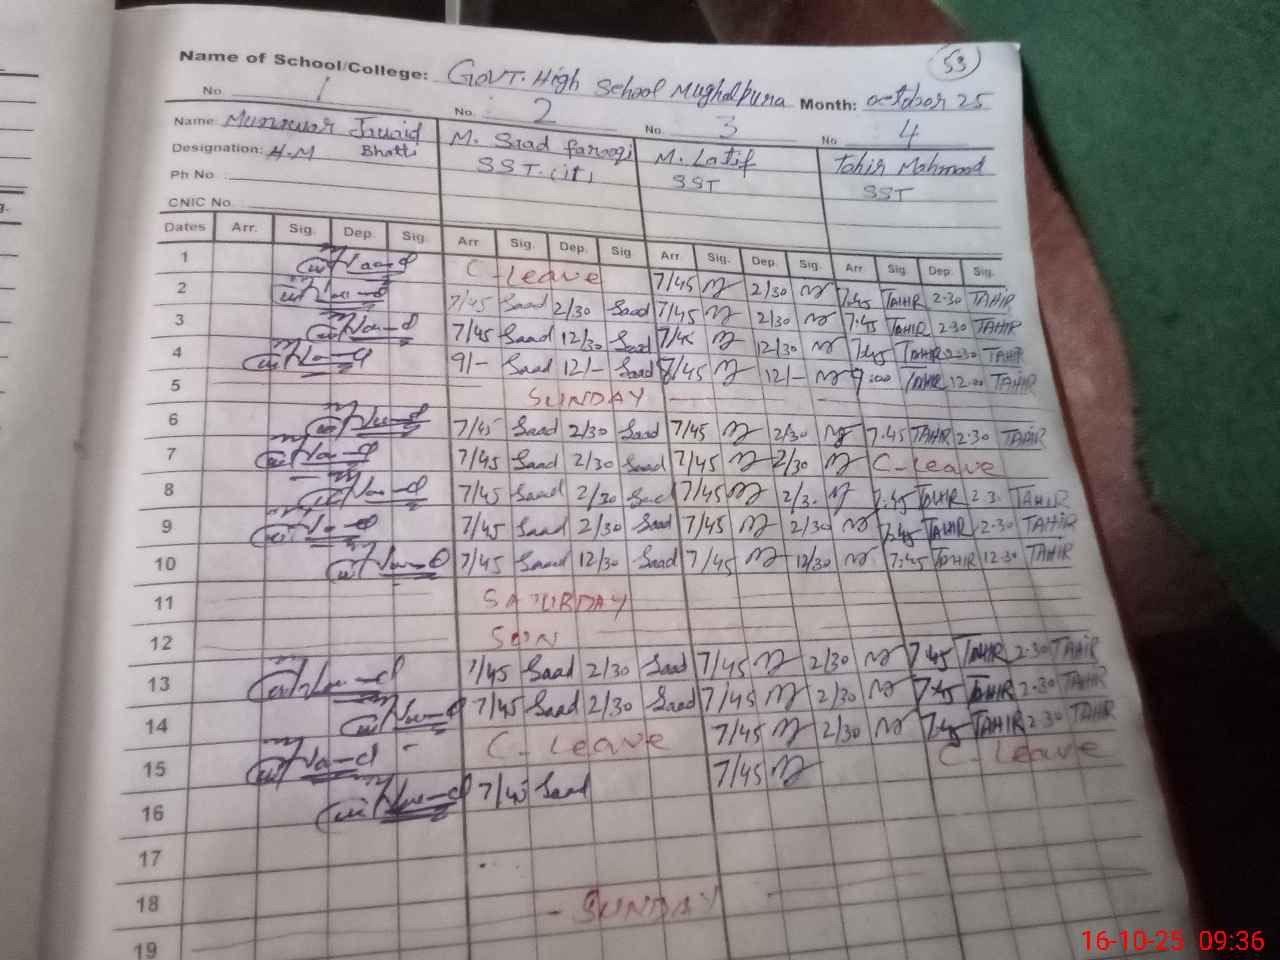 53
Name of School/College: Govt. High School Mughalpura Month: october 25
No. 1 No. 2 No. 3 No. 4
Name: Munawar Javaid M. Saad farooqi M. Latif Tahir Mahmood
Designation: H.M Bhatti SST.(it) SST SST
Ph No.:
CNIC No.:
Dates Arr. Sig. Dep. Sig. Arr Sig. Dep. Sig Arr. Sig. Dep. Sig. Arr. Sig. Dep. Sig.
1 C-Leave 7/45 2/30 7.45 TAHIR 2.30 TAHIR
2 7/45 Saad 2/30 Saad 7/45 2/30 7.45 TAHIR 2.30 TAHIR
3 7/45 Saad 12/30 Saad 7/45 12/30 7.45 TAHIR 2.30 TAHIR
4 9/- Saad 12/- Saad 7/45 12/- 9:00 TAHIR 12.00 TAHIR
5 SUNDAY
6 7/45 Saad 2/30 Saad 7/45 2/30 7.45 TAHIR 2.30 TAHIR
7 7/45 Saad 2/30 Saad 7/45 2/30 C-Leave
8 7/45 Saad 2/30 Saad 7/45 2/3. 7.45 TAHIR 2.3. TAHIR
9 7/45 Saad 2/30 Saad 7/45 2/30 7.45 TAHIR 2.30 TAHIR
10 7/45 Saad 12/30 Saad 7/45 12/30 7.45 TAHIR 12.30 TAHIR
11 SATURDAY
12 SUN
13 7/45 Saad 2/30 Saad 7/45 2/30 7.45 TAHIR 2.30 TAHIR
14 7/45 Saad 2/30 Saad 7/45 2/30 7.45 TAHIR 2.30 TAHIR
15 C-Leave 7/45 2/30 7.45 TAHIR 2.30 TAHIR
16 7/45 Saad 7/45 C-Leave
17
18 - SUNDAY
19
16-10-25 09:36